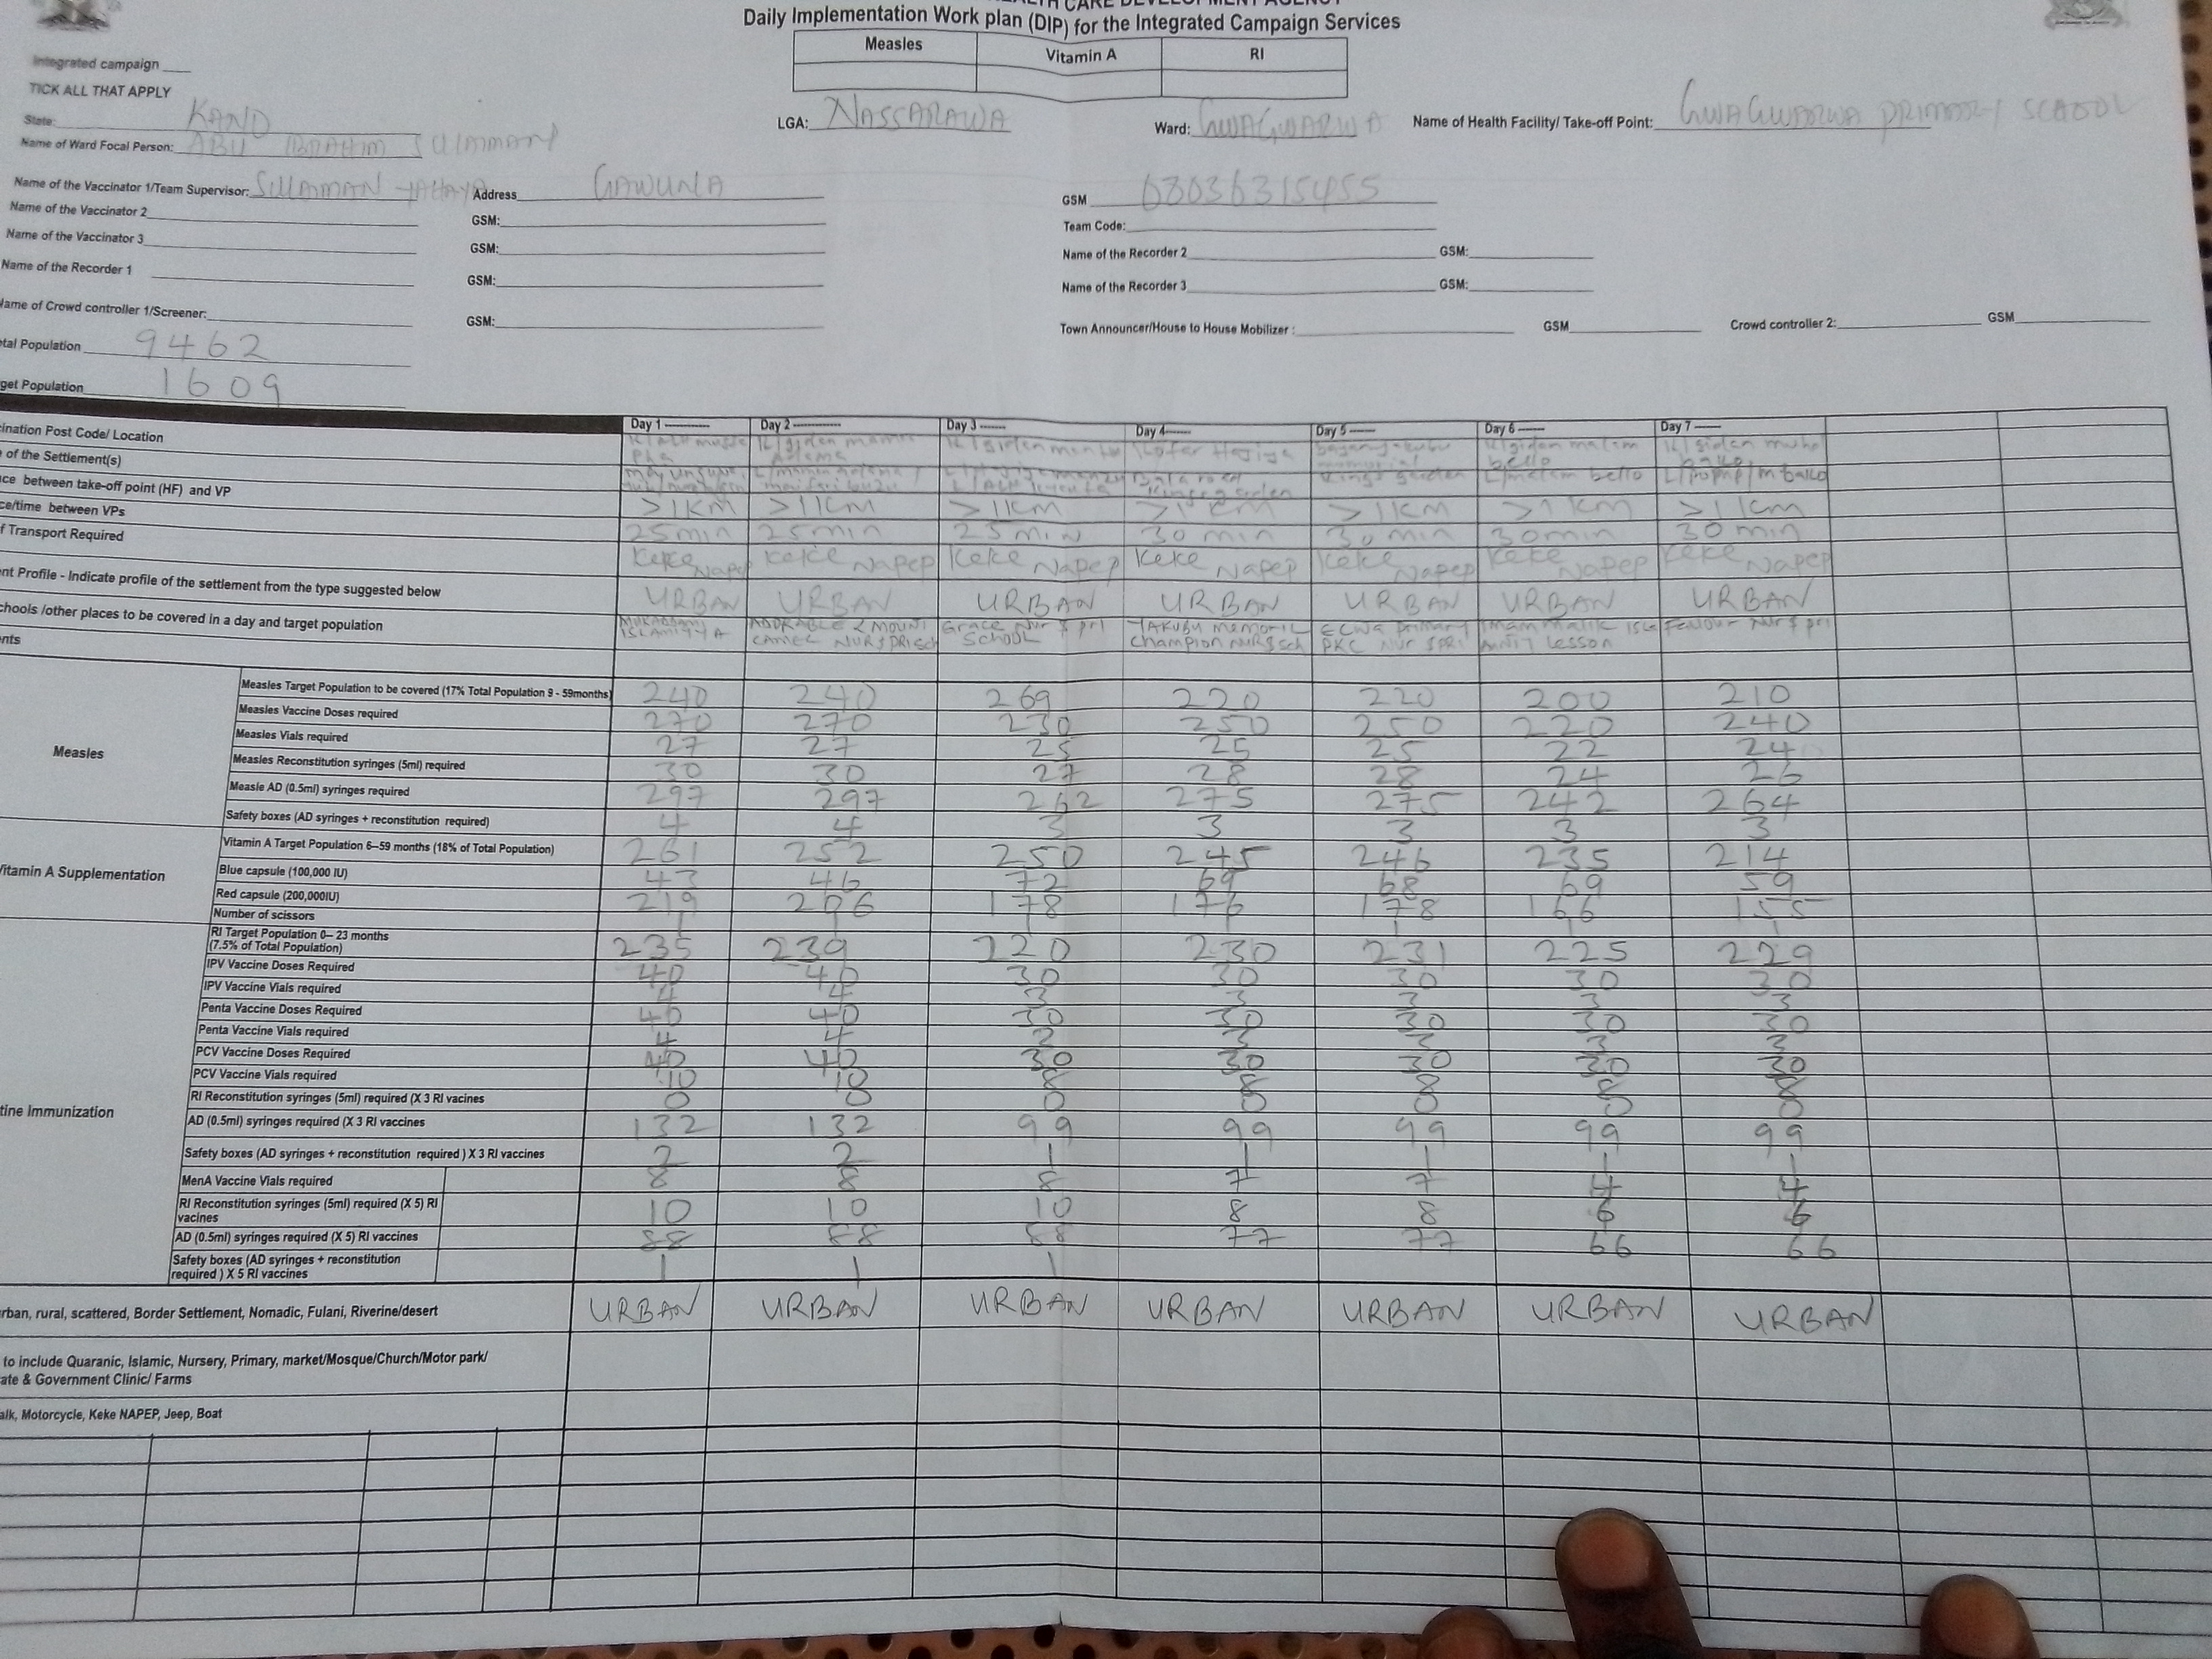 HEALTH CARE DEVELOPMENT AGENCY
Daily Implementation Work plan (DIP) for the Integrated Campaign Services
Measles Vitamin A RI
Integrated campaign ____
TICK ALL THAT APPLY
State: KANO LGA: NASSARAWA Ward: GWAGWARWA Name of Health Facility/ Take-off Point: GWAGWARWA PRIMARY SCHOOL
Name of Ward Focal Person: ABU IBRAHIM
Name of the Vaccinator 1/Team Supervisor: SULAIMAN YAHAYA Address GAWUNA GSM 08036315455
Name of the Vaccinator 2 GSM: Team Code:
Name of the Vaccinator 3 GSM: Name of the Recorder 2 GSM:
Name of the Recorder 1 GSM: Name of the Recorder 3 GSM:
Name of Crowd controller 1/Screener: GSM: Town Announcer/House to House Mobilizer : GSM Crowd controller 2: GSM
tal Population 9462
get Population 1609
Day 1 Day 2 Day 3 Day 4 Day 5 Day 6 Day 7
ination Post Code/ Location
of the Settlement(s)
ce between take-off point (HF) and VP
ce/time between VPs >1KM >1KM >1KM >1KM >1KM >1KM >1KM
f Transport Required 25min 25min 25min 30 min 30 min 30min 30 min
Keke Napep Keke Napep Keke Napep Keke Napep Keke Napep Keke Napep Keke Napep
nt Profile - Indicate profile of the settlement from the type suggested below URBAN URBAN URBAN URBAN URBAN URBAN URBAN
chools /other places to be covered in a day and target population ISLAMIYYA ADORABLE & MOUNT CAMEL NUR & PRI SCH Grace Nur & pri SCHOOL YAKUBU Champion NUR & sch ECWA primary PKC NUR & PRI Imam malik Lesson Nur & pri
nts
Measles
Measles Target Population to be covered (17% Total Population 9 - 59months) 240 240 269 220 220 200 210
Measles Vaccine Doses required 270 270 230 250 250 220 240
Measles Vials required 27 27 25 25 25 22 24
Measles Reconstitution syringes (5ml) required 30 30 27 28 28 24 26
Measle AD (0.5ml) syringes required 297 297 262 275 275 242 264
Safety boxes (AD syringes + reconstitution required) 4 4 3 3 3 3 3
Vitamin A Supplementation
Vitamin A Target Population 6–59 months (18% of Total Population) 261 252 250 245 246 235 214
Blue capsule (100,000 IU) 43 46 72 69 68 69 59
Red capsule (200,000IU) 219 206 178 176 178 166 155
Number of scissors 1 1 1 1 1 1 1
tine Immunization
RI Target Population 0– 23 months
(7.5% of Total Population) 235 239 220 230 231 225 229
IPV Vaccine Doses Required 40 40 30 30 30 30 30
IPV Vaccine Vials required 4 4 3 3 3 3 3
Penta Vaccine Doses Required 40 40 30 30 30 30 30
Penta Vaccine Vials required 4 4 3 3 3 3 3
PCV Vaccine Doses Required 40 40 30 30 30 30 30
PCV Vaccine Vials required 10 10 8 8 8 8 8
RI Reconstitution syringes (5ml) required (X 3 RI vacines 0 0 0 0 0 0 0
AD (0.5ml) syringes required (X 3 RI vaccines 132 132 99 99 99 99 99
Safety boxes (AD syringes + reconstitution required ) X 3 RI vaccines 2 2 1 1 1 1 1
MenA Vaccine Vials required 8 8 8 7 7 4 4
RI Reconstitution syringes (5ml) required (X 5) RI
vacines 10 10 10 8 8 6 6
AD (0.5ml) syringes required (X 5) RI vaccines 88 88 88 77 77 66 66
Safety boxes (AD syringes + reconstitution
required ) X 5 RI vaccines 1 1 1
rban, rural, scattered, Border Settlement, Nomadic, Fulani, Riverine/desert URBAN URBAN URBAN URBAN URBAN URBAN URBAN
to include Quaranic, Islamic, Nursery, Primary, market/Mosque/Church/Motor park/
ate & Government Clinic/ Farms
alk, Motorcycle, Keke NAPEP, Jeep, Boat